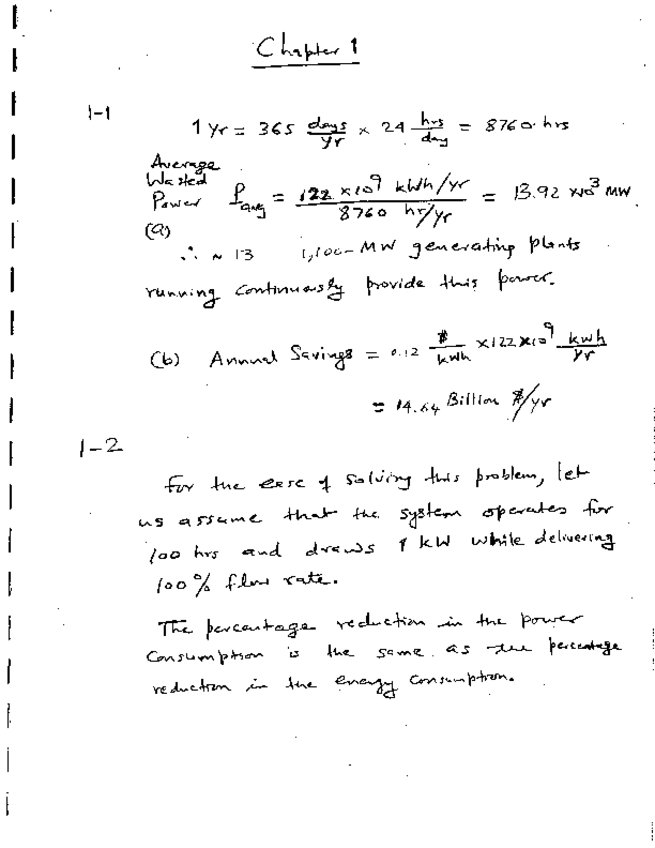 Chapter 1
1-1
1 Yr = 365 days/yr × 24 hrs/day = 8760 hrs
Average
Wasted
Power P_avg = 122 × 10^9 kWh/yr / 8760 hr/yr = 13.92 × 10^3 MW
(a)
∴ ~ 13 1,100-MW generating plants
running continuously provide this power.
(b) Annual Savings = 0.12 $/kWh × 122 × 10^9 kWh/yr
= 14.64 Billion $/yr
1-2
For the ease of solving this problem, let
us assume that the system operates for
100 hrs and draws 1 kW while delivering
100% flow rate.
The percentage reduction in the power
consumption is the same as the percentage
reduction in the energy consumption.